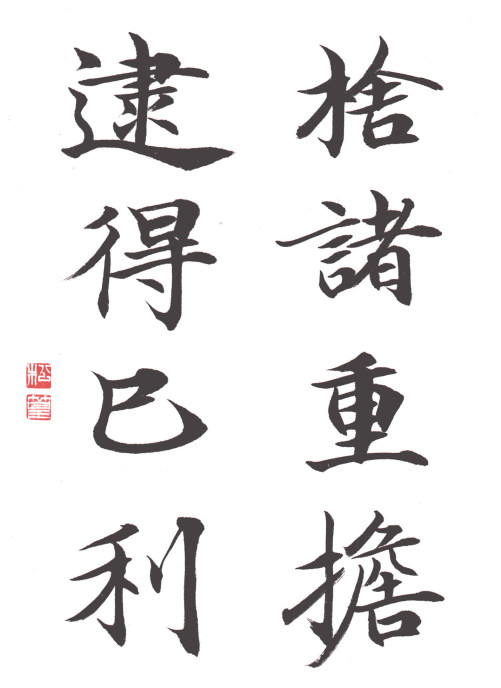 捨諸重擔
逮得己利